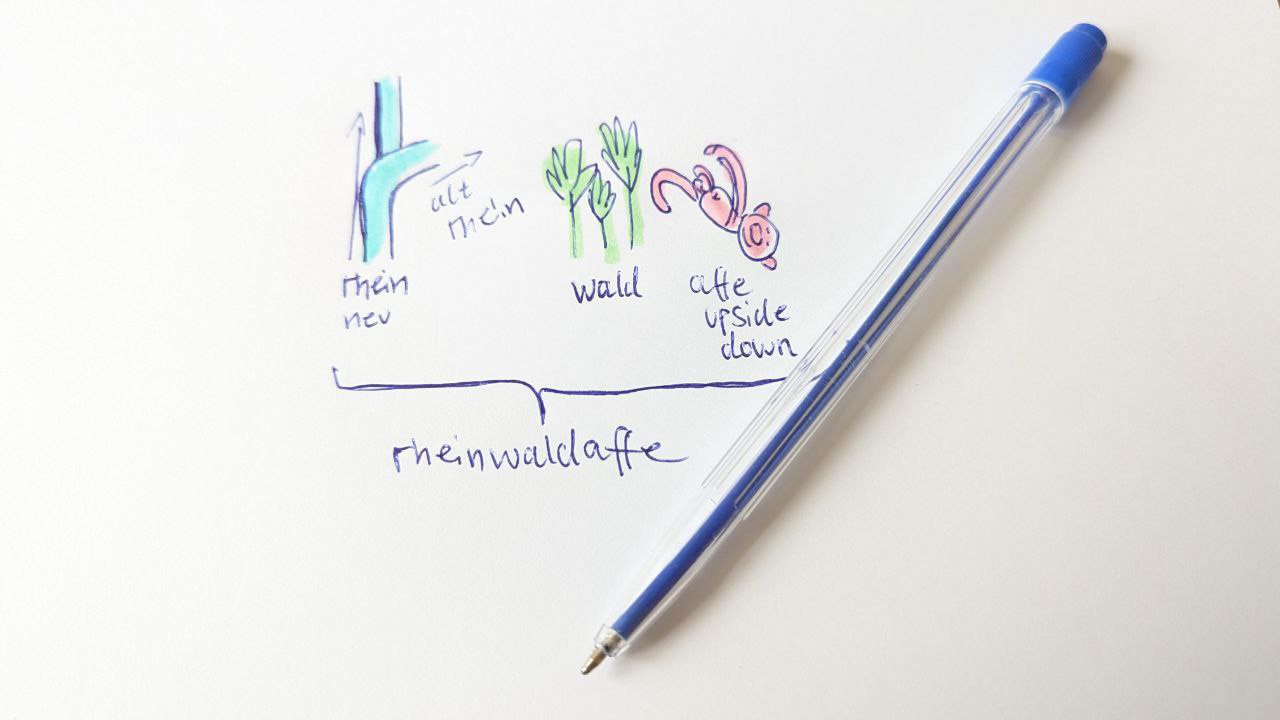 alt
rhein
rhein
neu
wald
affe
upside
down
rheinwaldaffe